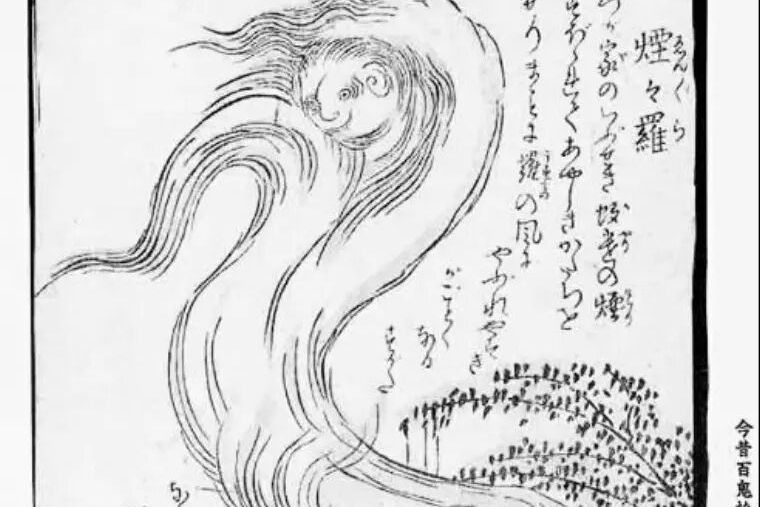 煙々羅
ゑん〱ら
づが家のいぶせき蚊遣の煙
すぼゝれてあやしきかたちを
せりまことに羅の風に
うすもの
やぶれやすき
がごとく
なる
すがた
な
今昔百鬼拾